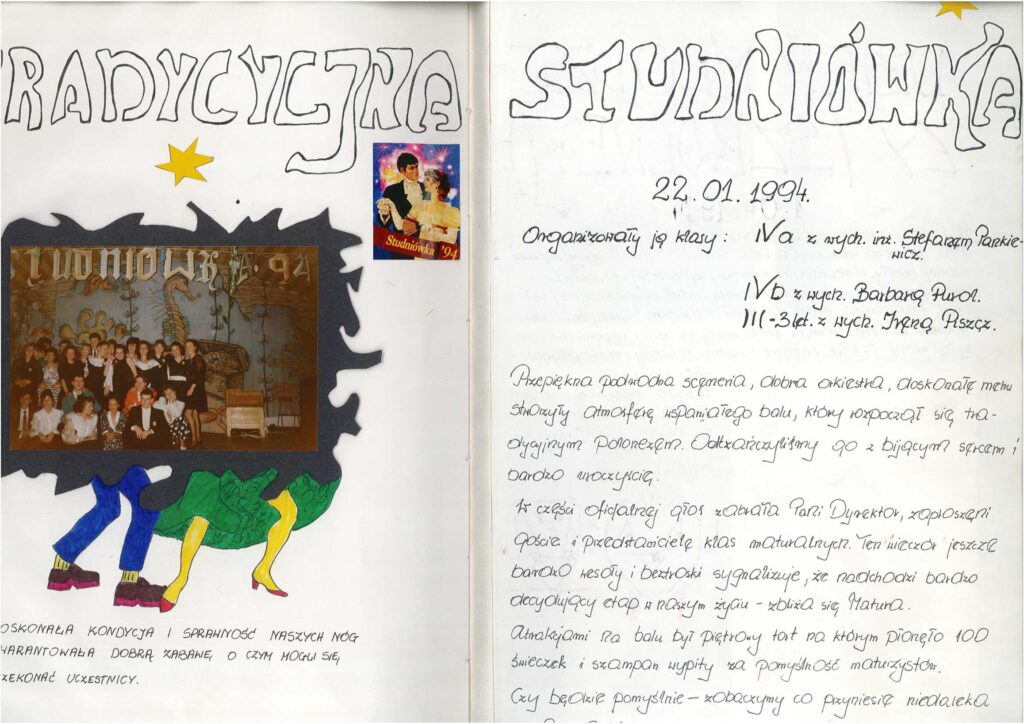 RADYCYJNA
Studniówka '94
TUDNIÓWKA·94
OSKONAŁA KONDYCJA I SPRAWNOŚĆ NASZYCH NÓG
WARANTOWAŁA DOBRĄ ZABAWĘ, O CZYM MOGLI SIĘ
ZEKONAĆ UCZESTNICY.
STUDNIÓWKA
22.01.1994.
Organizowały ją klasy: IVa z wych. inż. Stefanem Pankie-
wicz.
IVb z wych. Barbarą Purol.
III-3let. z wych. Ireną Piszcz.
Przepiękna podwodna scęneria, dobra orkiestra, doskonałę menu
stworzyły atmosferę wspaniałego balu, który rozpoczął się tra-
dycyjnym polonezem. Odtańczyliśmy go z bijącym sercem i
bardzo uroczyście.
W części oficjalnej głos zabrała Pani Dyrektor, zaproszeni
goście i przedstawiciele klas maturalnych. Ten wieczór jeszcze
bardzo wesoły i beztroski sygnalizuje, że nadchodzi bardzo
decydujący etap w naszym życiu - zbliża się Matura.
Atrakcjami na balu był piętrowy tort na którym płonęło 100
świeczek i szampan wypity za pomyślność maturzystów.
Czy będzie pomyślnie - zobaczymy co przyniesie niedaleka